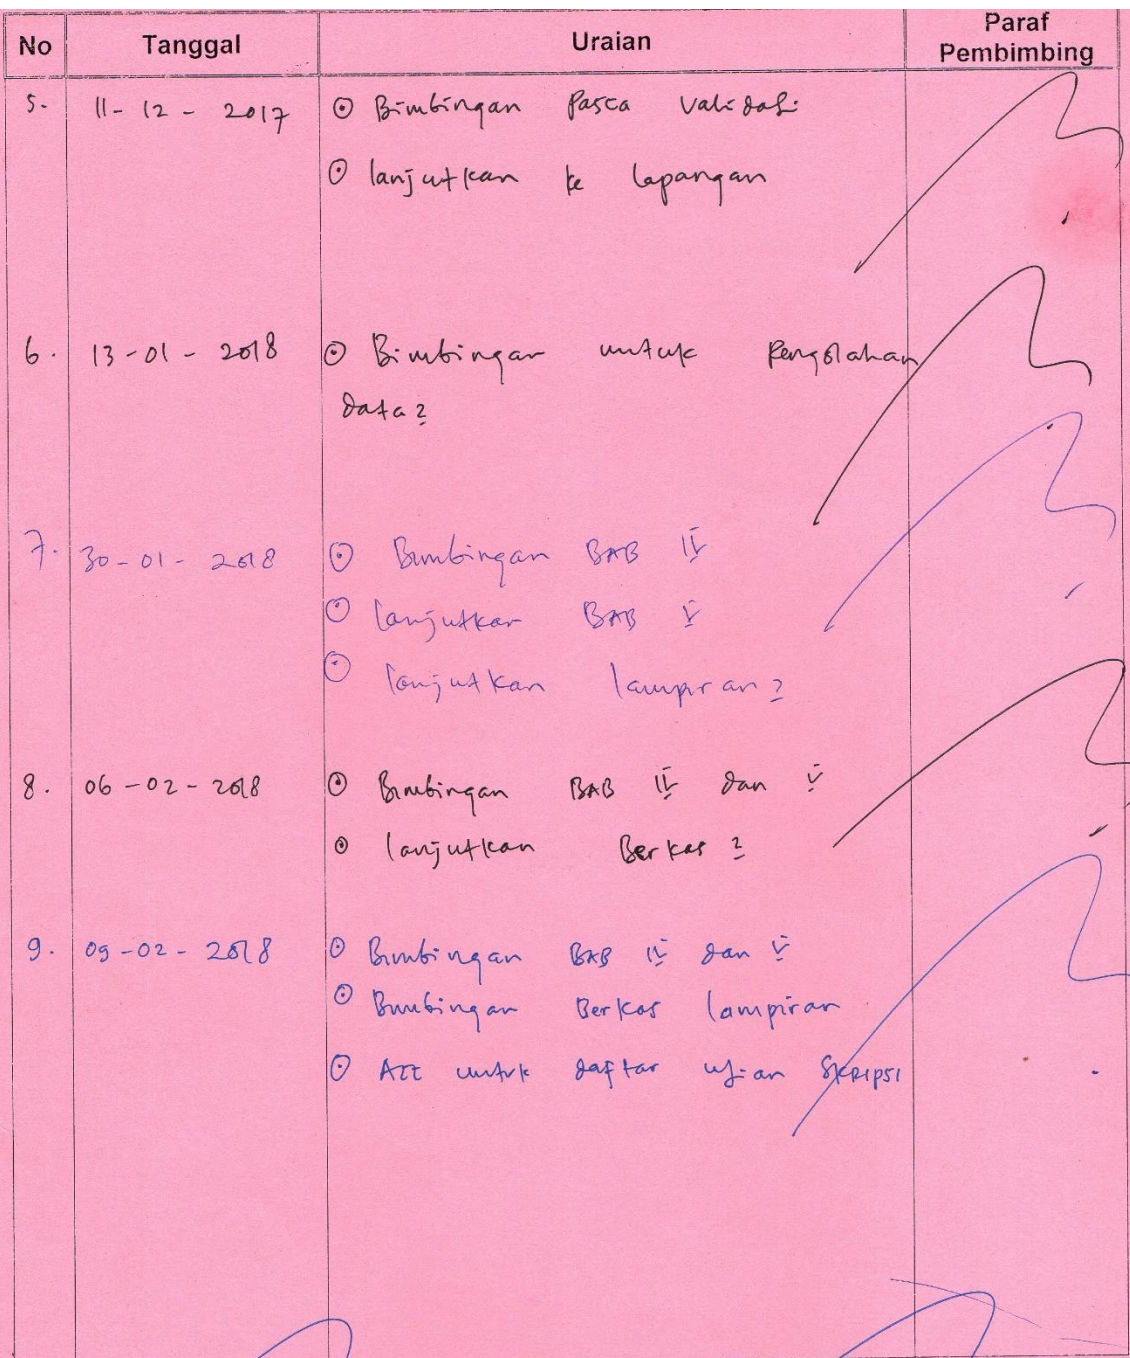 No Tanggal Uraian Paraf Pembimbing
5. 11-12-2017 Bimbingan Pasca Validasi
lanjutkan ke lapangan
6. 13-01-2018 Bimbingan untuk Pengolahan
data?
7. 30-01-2018 Bimbingan BAB IV
lanjutkan BAB V
lanjutkan lampiran?
8. 06-02-2018 Bimbingan BAB IV dan V
lanjutkan Berkas?
9. 09-02-2018 Bimbingan BAB IV dan V
Bimbingan Berkas lampiran
ACC untuk daftar ujian SKRIPSI